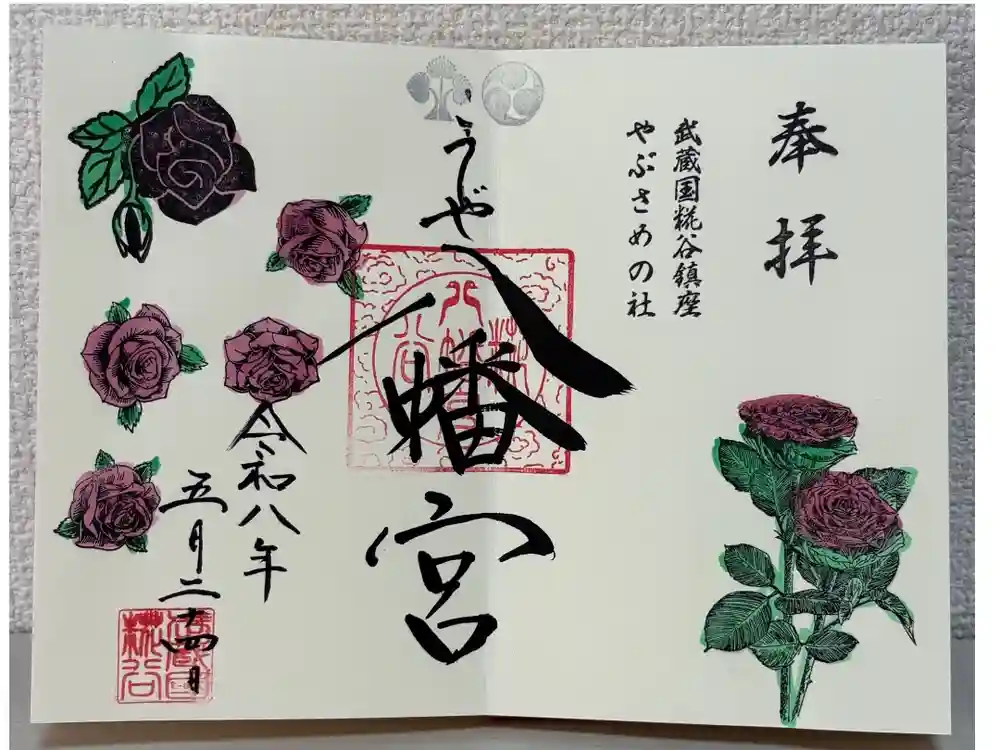 奉拝
武蔵国糀谷鎮座
やぶさめの社
うじや
八幡宮
令和八年
五月二十四日
糀谷